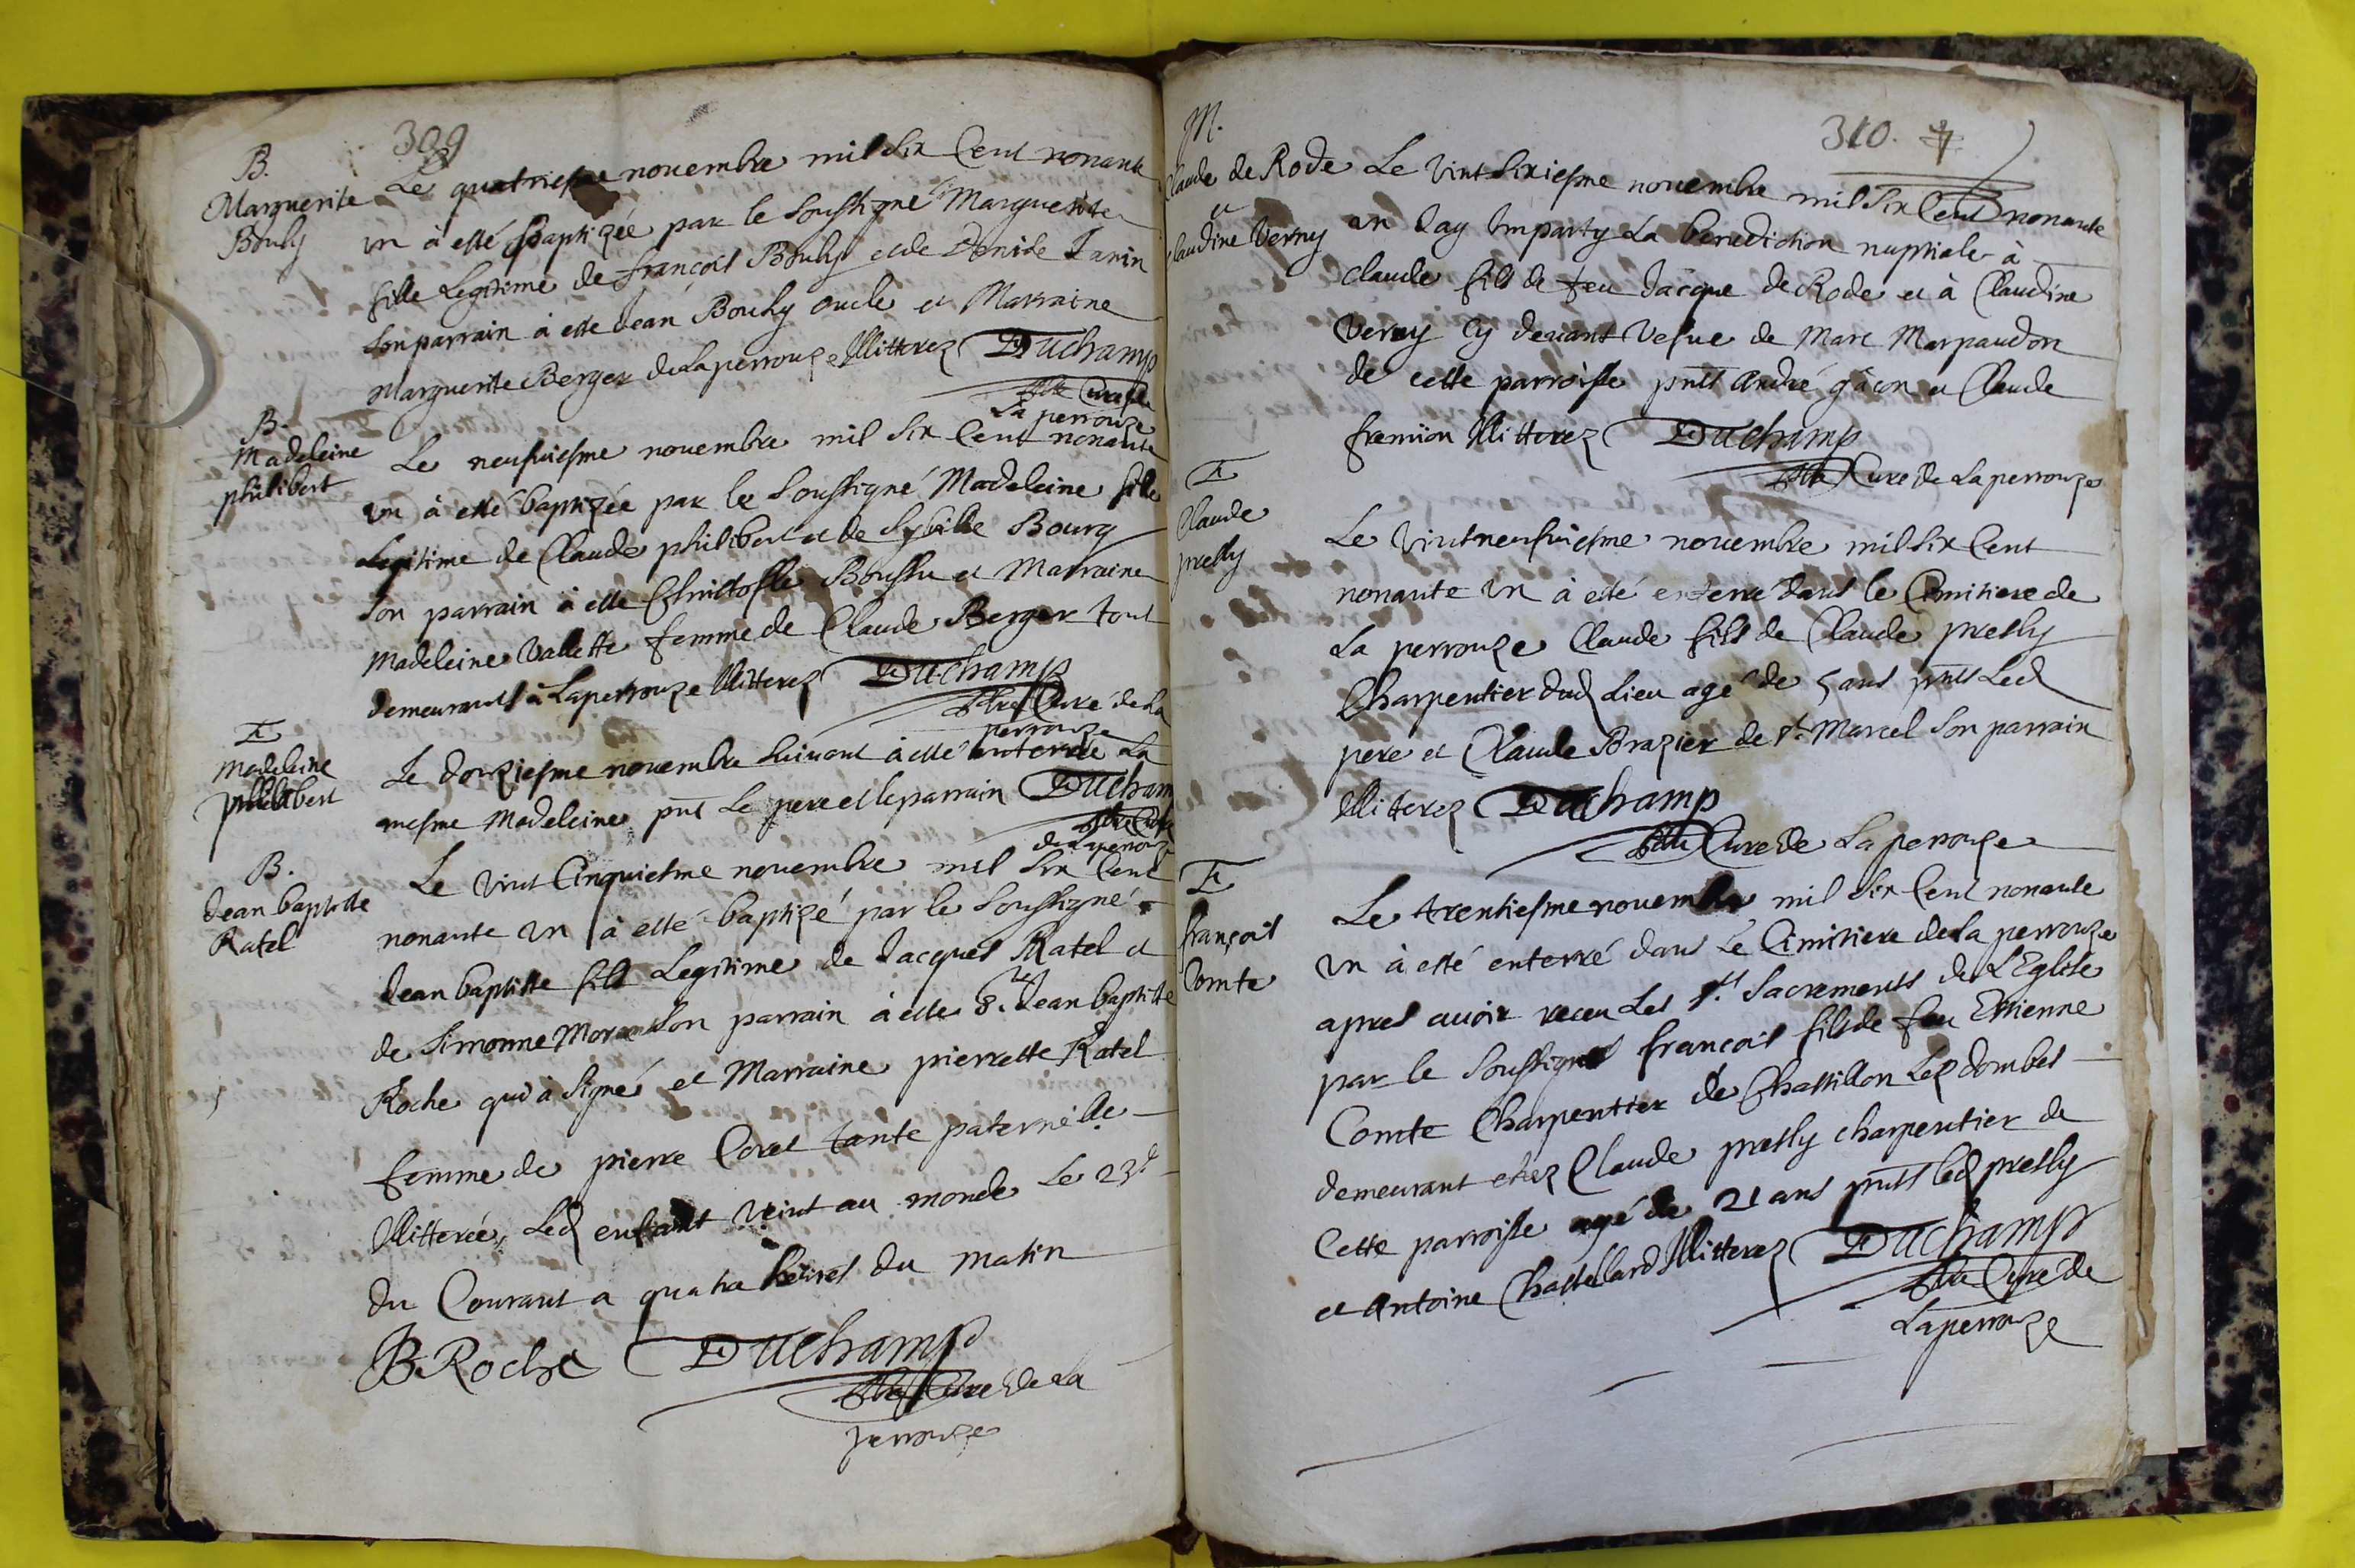 309
B.
Marguerite
Bouly
Le quatriesme novembre mil six Cent nonante
un à esté Baptizée par le Soussigné Marguerite
fille Legitime de françois Bouly et de Denise Janin
Son parrain à esté Jean Bouly oncle et Marraine
Marguerite Berger de Laperrouze Illitterez Duchamp
ptre Curé de
La perrouze
B.
Madeleine
philibert
Le neufviesme novembre mil six Cent nonante
un à esté baptizée par le Soussigné Madeleine fille
Legitime de Claude philibert et de Sybille Bourg
Son parrain à esté Christofle Boussu et Marraine
Madeleine Vallette femme de Claude Berger tout
demeurants à Laperrouze Illitterez Duchamp
ptre Curé de La
perrouze
E
Madeleine
philibert
Le douziesme novembre Suivant à esté enterrée La
mesme Madeleine pnt Le pere et le parrain Duchamp
ptre Curé
de Laperrouze
B.
Jean baptiste
Ratel
Le vint Cinquiesme novembre mil Six Cent
nonante un à esté baptizé par le Soussigné
Jean baptiste fils Legitime de Jacques Ratel et
de Simonne Son parrain à esté Sr. Jean baptiste
Roche qui à Signé et Marraine pierrette Ratel
femme de pierre Coret tante paternelle
Illitterée, Led enfant vint au monde Le 23e
du Courant a quatre heures du matin
B Roche Duchamp
ptre Curé de La
perrouze
310.
M.
Claude de Rode
et
Claudine Verny
Le vint Sixiesme novembre mil Six Cent nonante
un Jay Imparty La benediction nuptiale à
Claude fils de feu Jacque de Rode et à Claudine
Verny Cy devant Vefve de Marc Marpaudon
de cette parroisse pnts André gâcon et Claude
fremion Illitterez Duchamp
ptre Curé de Laperrouze
E
Claude
presly
Le Vintneufviesme novembre mil Six Cent
nonante un à esté enterré dans le Cimitiere de
La perrouze Claude fils de Claude presly
Charpentier dud Lieu agé de 5 ans pnts Led
pere et Claude Brazier de St. Marcel Son parrain
Illiterez Duchamp
ptre Curé de Laperrouze
E
françois
Comte
Le trentiesme novembre mil Six Cent nonante
un à esté enterré dans Le Cimitiere de La perrouze
apres avoir receu Les Sts Sacrements de L'Eglise
par le Soussigné françois fils de feu Estienne
Comte Charpentier de Chastillon Lez dombes
demeurant chez Claude presly charpentier de
Cette parroisse agé de 21 ans pnts led presly
et Antoine Chastellard Illitterez Duchamp
ptre Curé de
Laperrouze